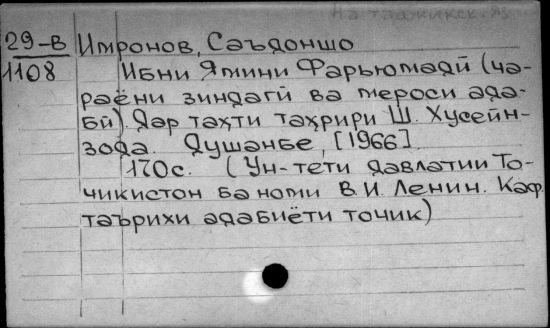 На таджикск. яз.
29-В Имронов, Саъдоншо
1108 Ибни Ямини Фарьюмадӣ (ҷа-
раёни зиндагӣ ва мероси ада-
бӣ). Дар таҳти таҳрири Ш. Хусейн-
зода. Душанбе, [1966].
170с. (Ун-тети давлатии То-
ҷикистон ба номи В.И. Ленин. Каф.
таърихи адабиёти тоҷик)